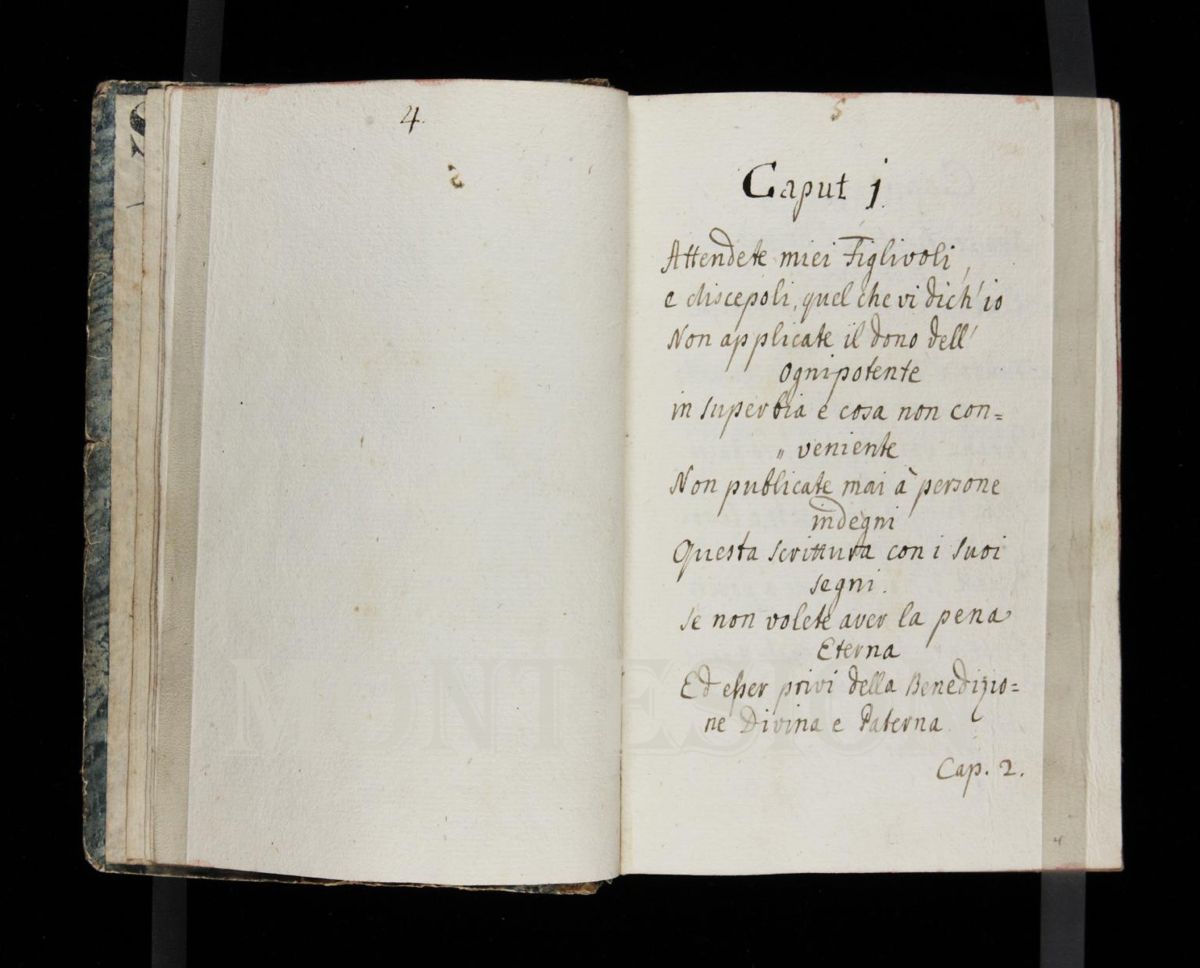 4.
5
Caput j.
Attendete miei Figlivoli,
e discepoli, quel che vi dich' io
Non applicate il dono dell'
Ognipotente
in superbia e cosa non con=
„ veniente
Non publicate mai à persone
indegni
Questa scrittura con i suoi
segni.
Se non volete aver la pena
Eterna
Ed esser privi della Benedizio=
ne Divina e Paterna
Cap. 2.
MONTESION